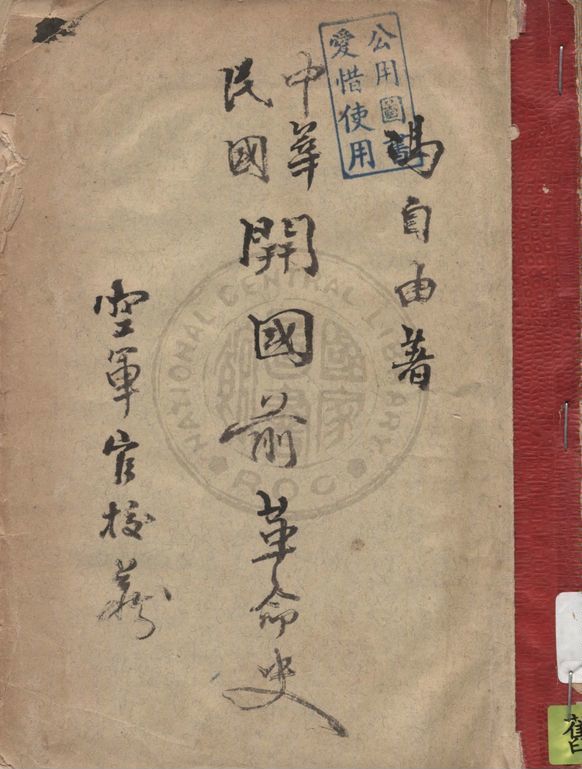 公用圖書
愛惜使用
馮自由著
中華
民國
開國前革命史
空軍官校
NATIONAL CENTRAL LIBRARY
R.O.C.
舊